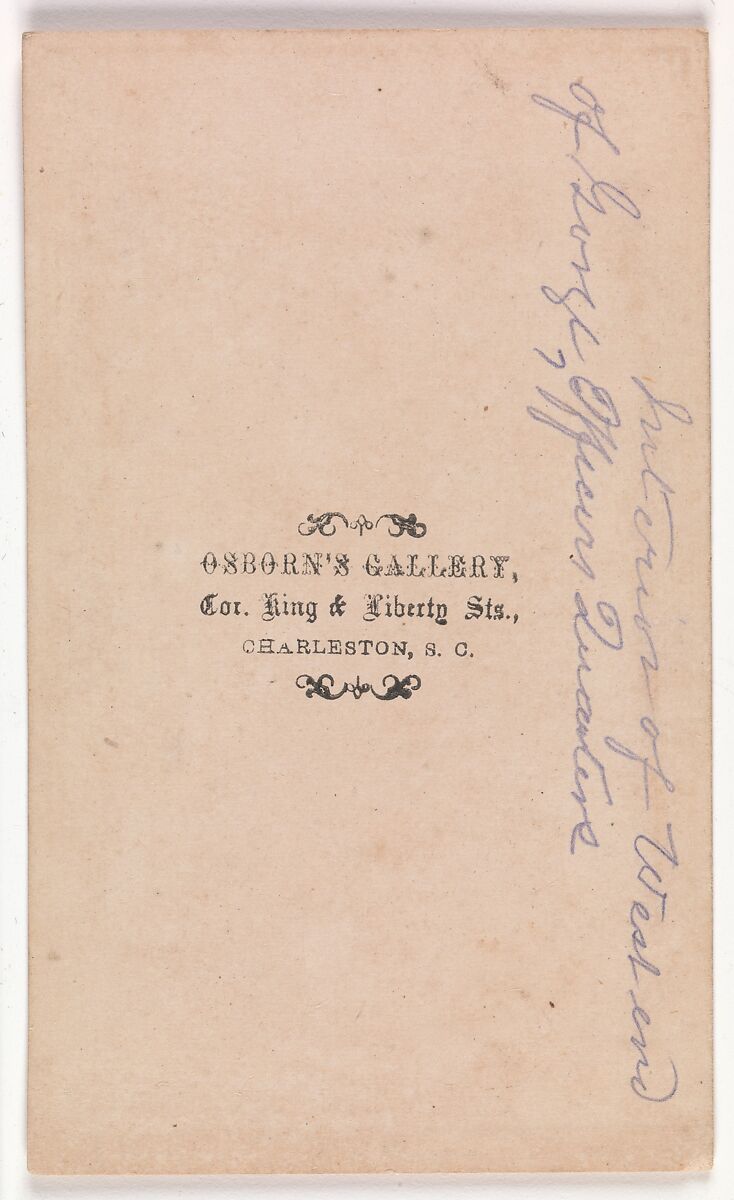 Interior of West end
of Gorge, Officers Quarters
OSBORN'S GALLERY,
Cor. King & Liberty Sts.,
CHARLESTON, S. C.